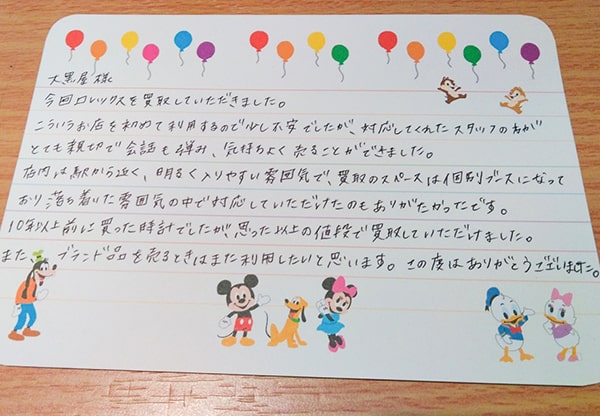 大黒屋様
今回ロレックスを買取していただきました。
こういうお店を初めて利用するので少し不安でしたが、対応してくれたスタッフのかたが
とても親切で会話も弾み、気持ちよく売ることができました。
店内は駅から近く、明るく入りやすい雰囲気で、買取のスペースは個別ブースになって
おり落ち着いた雰囲気の中で対応していただけたのもありがたかったです。
10年以上前に買った時計でしたが、思った以上の値段で買取していただけました。
また、ブランド品を売るときはまた利用したいと思います。この度はありがとうございました。